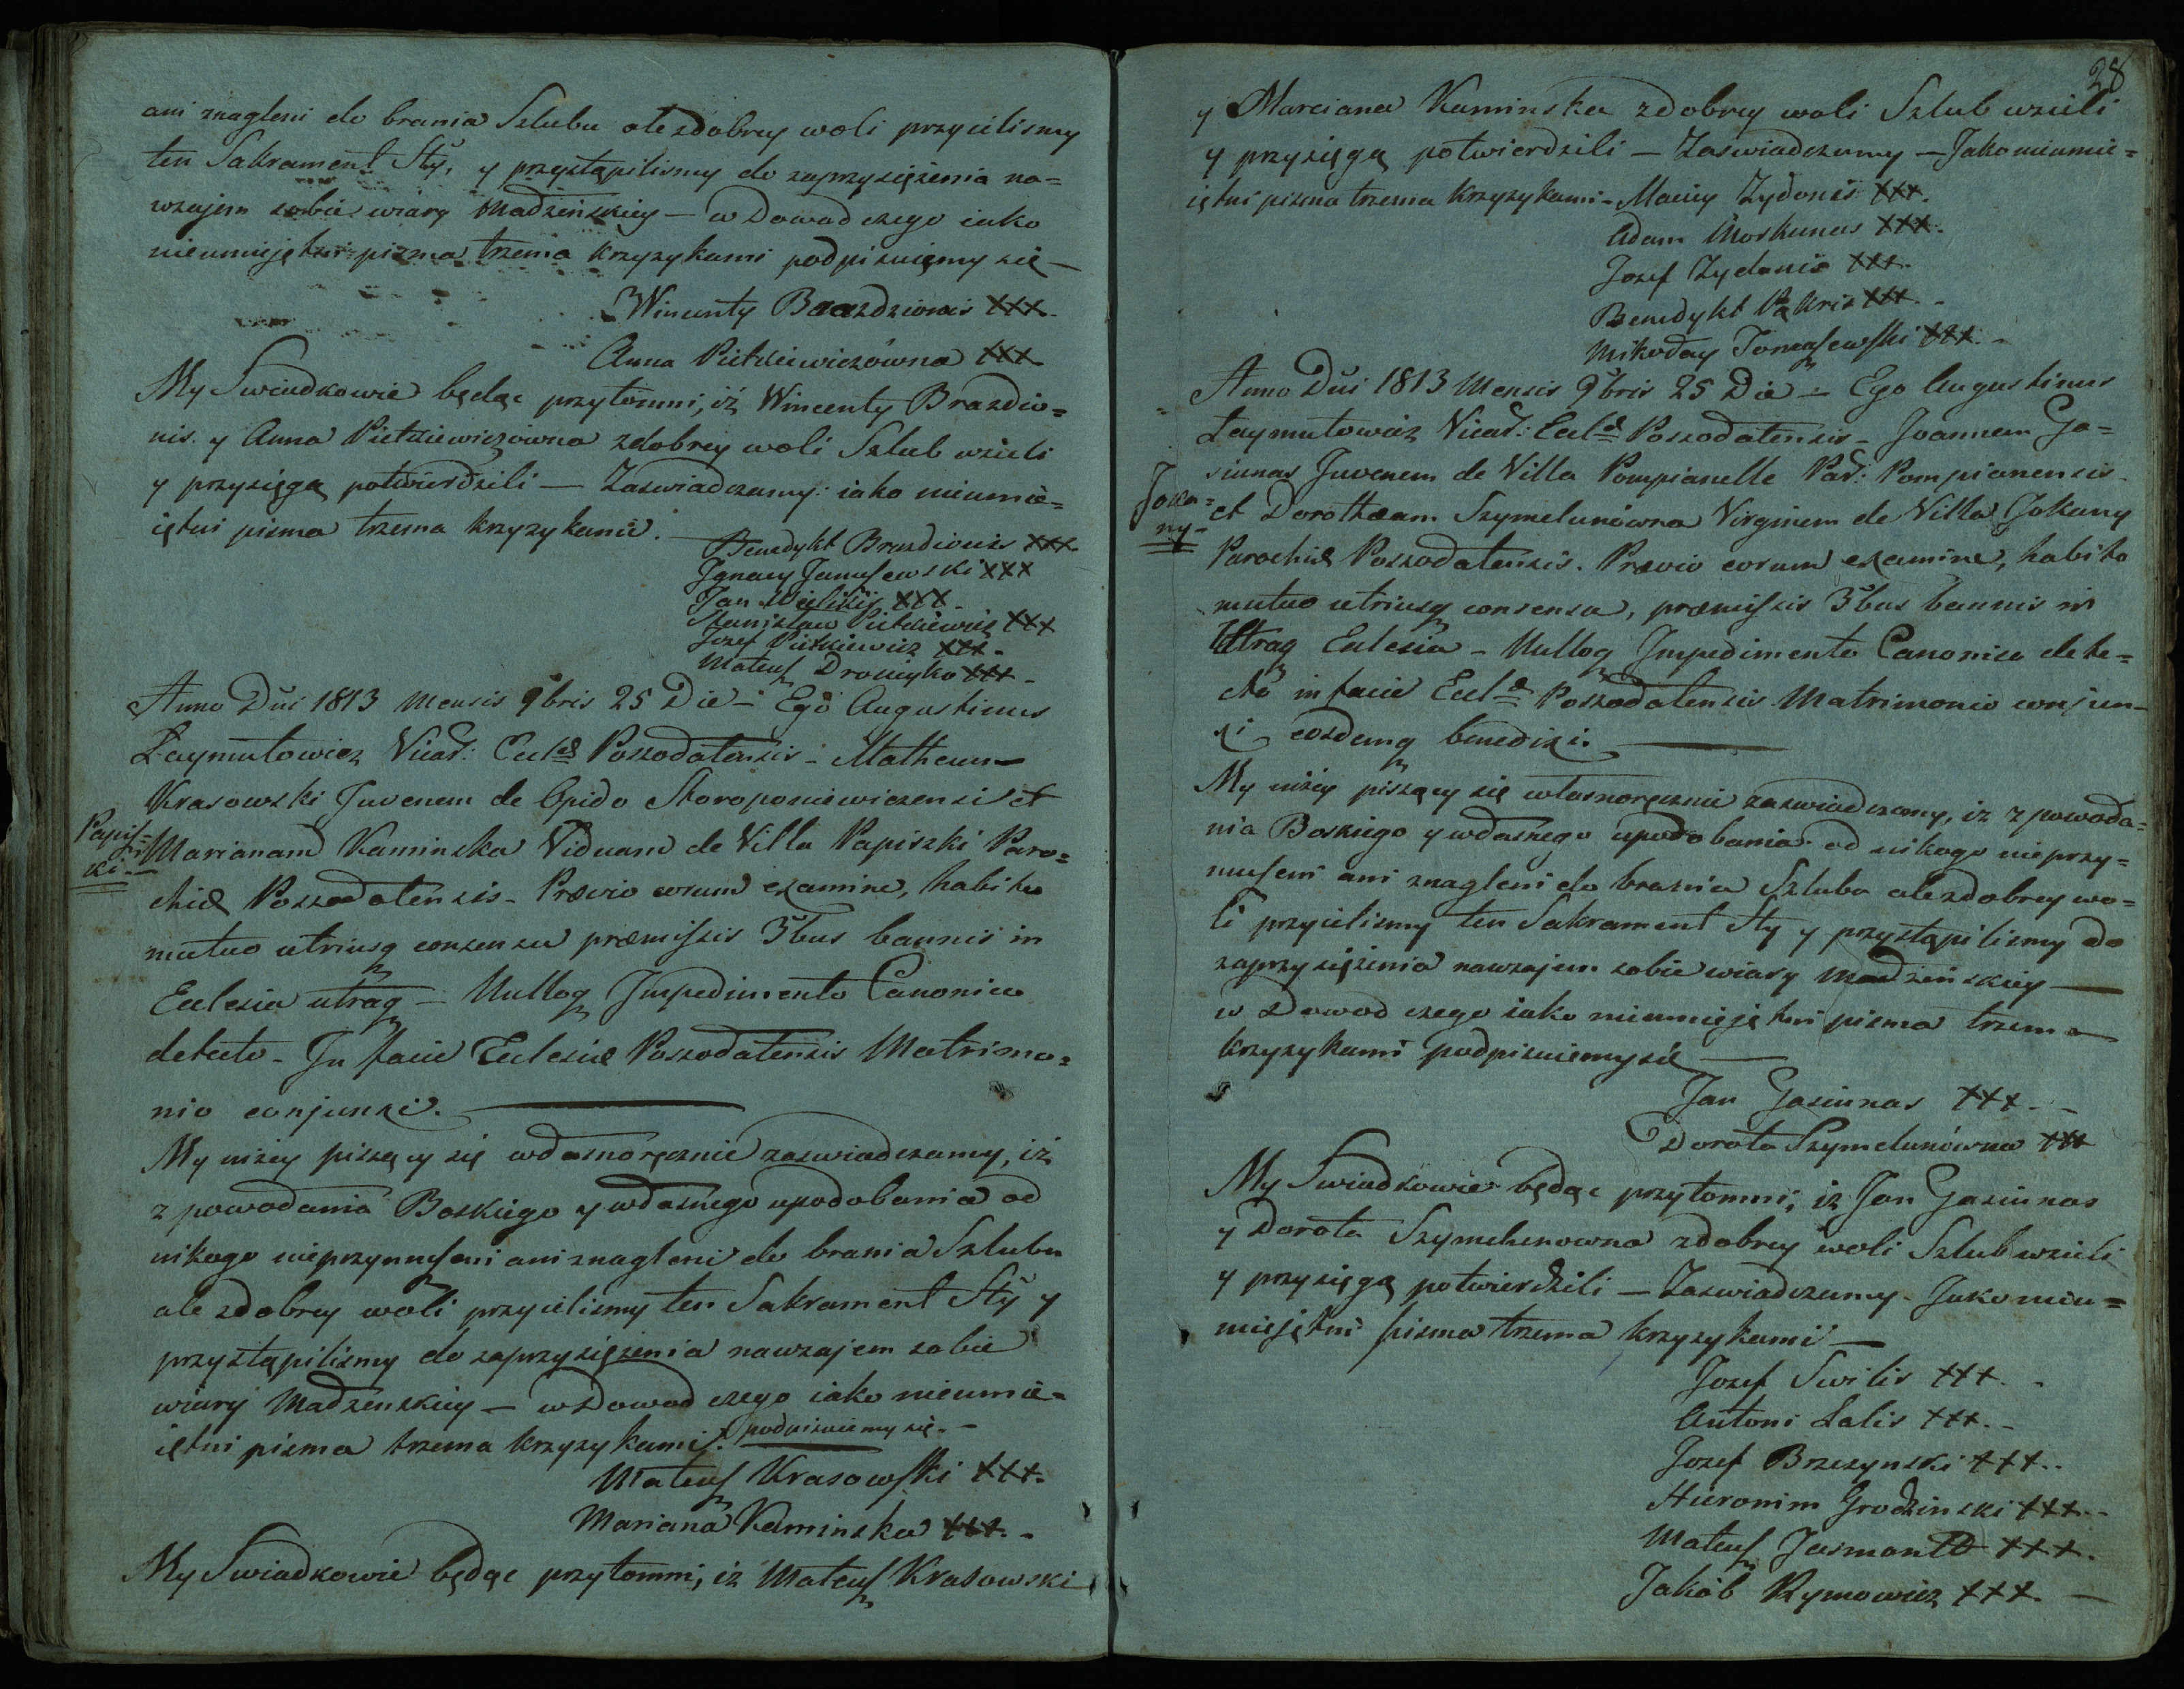 ani znagleni do brania Szlubu ale zdobrey woli przyielismy
ten Sakrament Sty, y przystąpilismy do zaprzysiężenia na=
wzajem sobie wiary Madzeńskiey — w Dowod czego iako
nieumiejętni pisma trzema krzyzykami podpisuięmy się —
Wincenty Brazdzionis XXX.
Anna Pietkiewiczówna XXX
My Swiadkowie będąc przytomni, iż Wincenty Brazdio=
nis y Anna Pietkiewiczówna zdobrey woli Szlub wzieli
y przysięgą potwierdzili — Zaswiadczamy: iako nieumie=
iętni pisma trzema krzyzykami.
Benedykt Brazdionis XXX.
Ignacy Janusewski XXX
Jan XXX
Stanisław Pietkiewicz XXX
Jozef Pietkiewicz XXX.
Mateusz XXX.
Anno Dni 1813 Mensis 9bris 25 Die — Ego Augustinus
Laymutowicz Vicar: Eccl Poszodatensis — Matheum
Krasowski Juvenem de Opido Staroponiewiezensi et
Papisz=
ki. —
Marianam Kaminska Viduam de Villa Papiszki Paro=
chiæ Poszodatensis — Prævio eorum examine, habito
mutuo utriusq consensu præmissis 3bus bannis in
Eclesia utraq — Nulloq Impedimento Canonico
detecto — In facie Eclesiæ Poszodatensis Matrimo=
nio conjunxi.
My niżey piszący się własnoręcznie zaswiadczamy, iż
z powodania Boskiego y własnego upodobania od
nikogo nieprzymuszeni ani znagleni do brania Szlubu
ale zdobrey woli przyielismy ten Sakrament Sty y
przystąpilismy do zaprzysięzenia nawzajem sobie
wiary Madzenskiey — w Dowod czego iako nieumie=
iętni pisma trzema krzyzykami podpisuiemy się. —
Mateusz Krasowski XXX.
Mariana Kaminska XXX. —
My Swiadkowie będąc przytomni, iż Mateusz Krasowski
28
y Marciana Kaminska zdobrey woli Szlub wzieli
y przysięgą potwierdzili — Zaswiadczamy — Jako nieumie=
iętni pisma trzema krzyzykami — Maciey Zydonis XXX.
Adam Moskunas XXX.
Jozef Zydonis XXX.
Benedykt XXX. —
Mikołay Tomaszewski XXX. —
Anno Dni 1813 Mensis 9bris 25 Die — Ego Augustinus
Laymutowicz Vicar: Eccl Poszodatensis — Joannem Ga=
siunas Juvenem de Villa Pompianelle Par: Pompianensis
Joku=
ny —
et Dorotheam Szymelunówna Virginem de Villa Jokuny
Parochiæ Poszodatensis. Prævio eorum examine, habito
mutuo utriusq consensu, præmissis 3bus bannis in
Utraq Eclesia — Nulloq Impedimento Canonico dete=
cto in facie Eccl Poszodatensis Matrimonio conjun=
xi eosdemq benedixi.
My niżey piszący się własnoręcznie zaswiadczamy, iz z powoda=
nia Boskiego y własnego upodobania od nikogo nieprzy=
muszeni ani znagleni do brania Szlubu ale zdobrey wo=
li przyielismy ten Sakrament Sty y przystąpilismy do
zaprzysięzenia nawzajem sobie wiary Madzeńskiey —
w Dowod czego iako nieumiejętni pisma trzema
krzyzykami podpisuiemy się —
Jan Gasiunas XXX. —
Dorota Szymelunówna XXX
My Swiadkowie będąc przytomni, iz Jan Gasiunas
y Dorota Szymelunowna zdobrey woli Szlub wzieli
y przysięgą potwierdzili — Zaswiadczamy. Jako nieu=
miejętni pisma trzema krzyzykami —
Jozef Swilis XXX. —
Antoni Lalis XXX. —
Jozef Brzezynski XXX..
Hieronim Grodzinski XXX. —
Mateusz Jasmontt XXX.
Jakób Rymowicz XXX. —